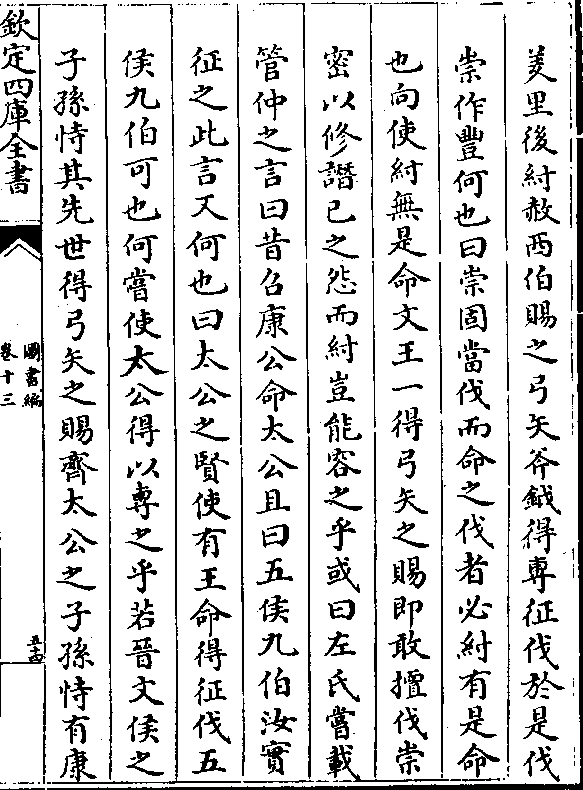 羑里後紂赦西伯賜之弓矢斧鉞得專征伐於是伐
崇作豐何也曰崇固當伐而命之伐者必紂有是命
也向使紂無是命文王一得弓矢之賜即敢擅伐崇
密以修譖已之怨而紂豈能容之乎或曰左氏嘗載
管仲之言曰昔召康公命太公且曰五侯九伯汝實
征之此言又何也曰太公之賢使有王命得征伐五
侯九伯可也何嘗使太公得以專之乎若晉文侯之
子孫恃其先世得弓矢之賜齊太公之子孫恃有康
欽定四庫全書
圖書編
卷十三
五十四